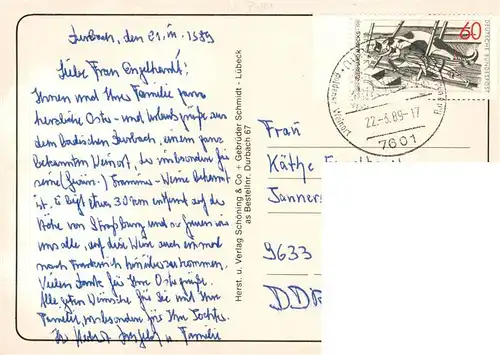 Durbach, den 21.III.1989
Liebe Frau Engelhardt!
Ihnen und Ihrer Familie ganz
herzliche Oster- und Urlaubsgrüße aus
dem badischen Durbach, einem ganz
bekannten Weinort, der insbesondere für
seine Traminer-Weine bekannt
ist. Er liegt etwa 30 km entfernt auf der
Höhe von Straßburg und so freuen wir
uns alle, auf diese Weise auch einmal
nach Frankreich hinüberzukommen.
Vielen Dank für Ihre Ostergrüße.
Alle guten Wünsche für Sie und Ihre
Familie, insbesondere für Ihre Tochter.
Ihr Herbert u. Familie
Herst. u. Verlag Schöning & Co + Gebrüder Schmidt - Lübeck
as Bestellnr. Durbach 67
60
DEUTSCHE BUNDESPOST
22.-3.89-17
7601
Frau
Käthe
9633